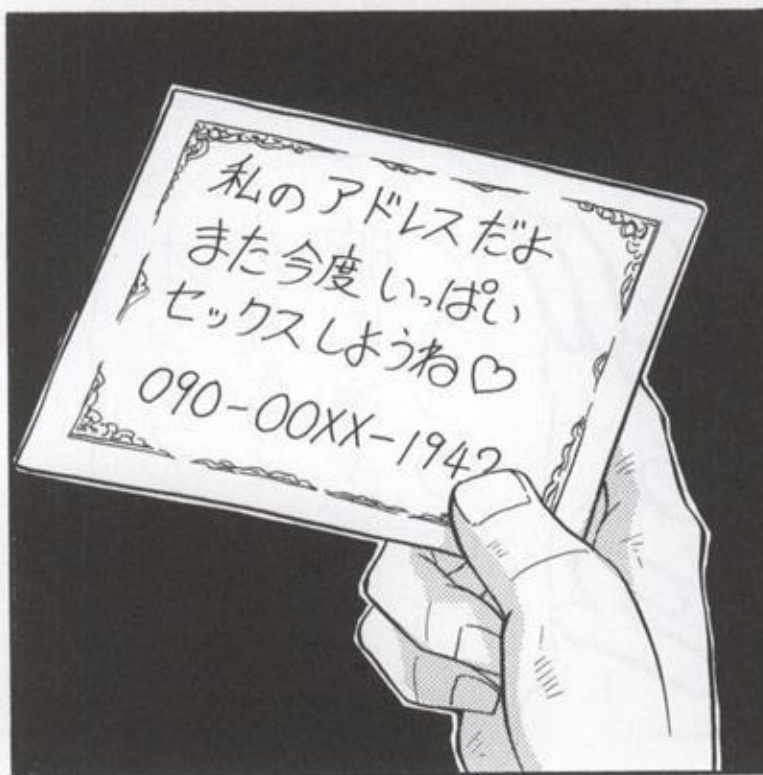 私のアドレスだよ
また今度いっぱい
セックスしようね♡
090-00XX-1942